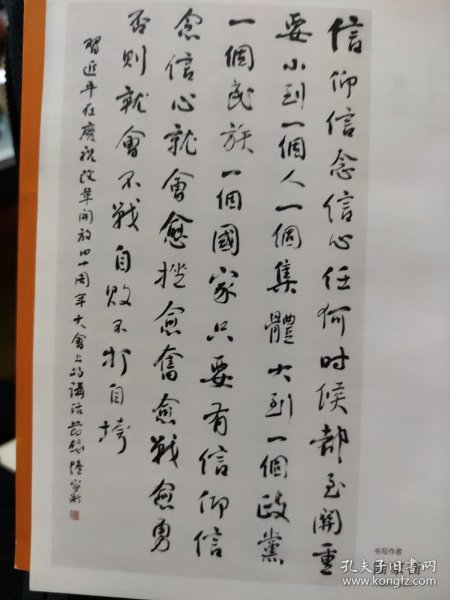 信仰信念信心任何时候都至關重
要小到一個人一個集體大到一個政黨
一個民族一個國家只要有信仰信
念信心就會愈挫愈奮愈戰愈勇
否則就會不戰自敗不打自垮
習近平在慶祝改革開放四十周年大會上的講話節錄
书写作者
孔夫子旧书网
www.kongfz.com